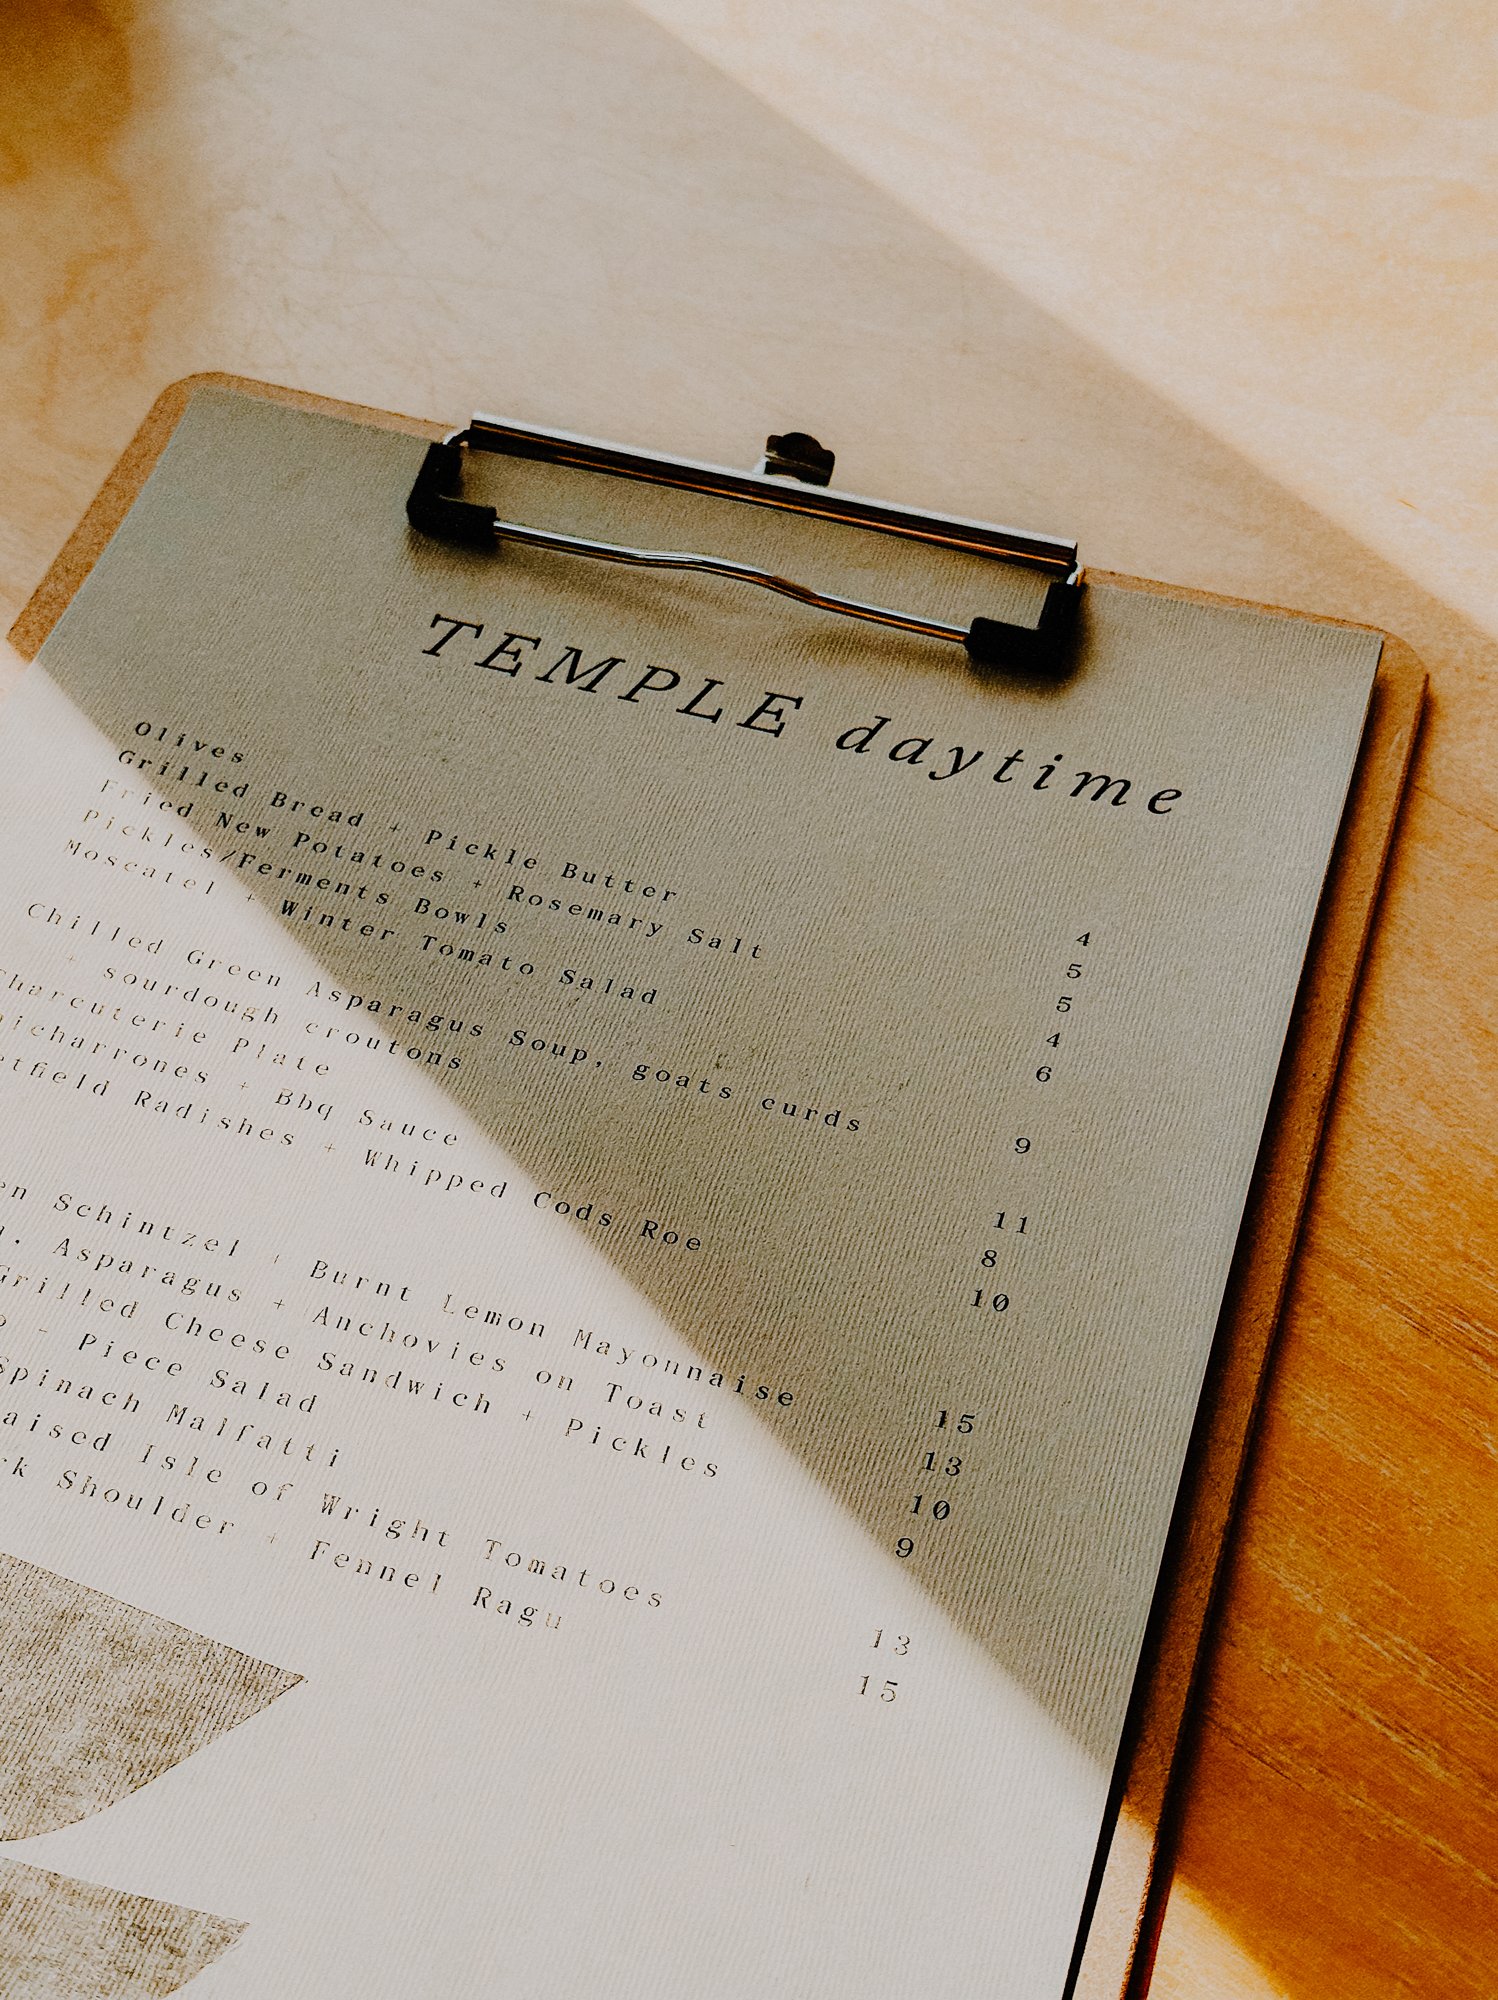 TEMPLE daytime
Olives 4
Grilled Bread + Pickle Butter 5
Fried New Potatoes + Rosemary Salt 5
Pickles/Ferments Bowls 4
Moscatel + Winter Tomato Salad 6
Chilled Green Asparagus Soup, goats curds
+ sourdough croutons 9
Charcuterie Plate 11
+ Bbq Sauce 8
Radishes + Whipped Cods Roe 10
Schintzel + Burnt Lemon Mayonnaise 15
Asparagus + Anchovies on Toast 13
Grilled Cheese Sandwich + Pickles 10
- Piece Salad 9
Spinach Malfatti
Isle of Wright Tomatoes 13
Shoulder + Fennel Ragu 15